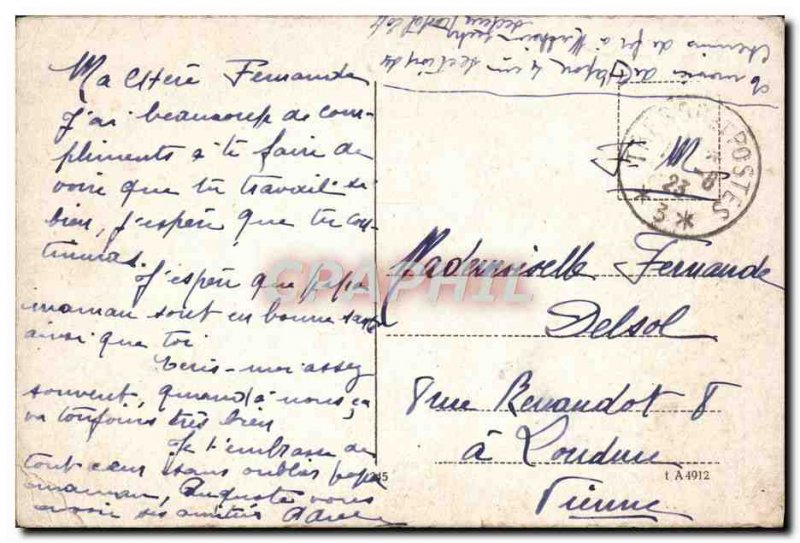 Ma chère Fernande
J'ai beaucoup de com-
pliments à te faire de
voir que tu travail si
bien, j'espère que tu con-
tinuras.
J'espère que papa
maman sont en bonne santé
ainsi que toi
Ecris-moi assez
souvent, quand à nous, ça
va toujours très bien
Je t'embrasse de
tout cœur sans oublier papa
maman, Auguste vous
envoie ses amitiés
F M
TRESOR ET POSTES
23 -8
* 3 *
CPAPHIL
Mademoiselle Fernande
Delsol
8 rue Renaudot 8
à Loudun
Vienne
t A 4912